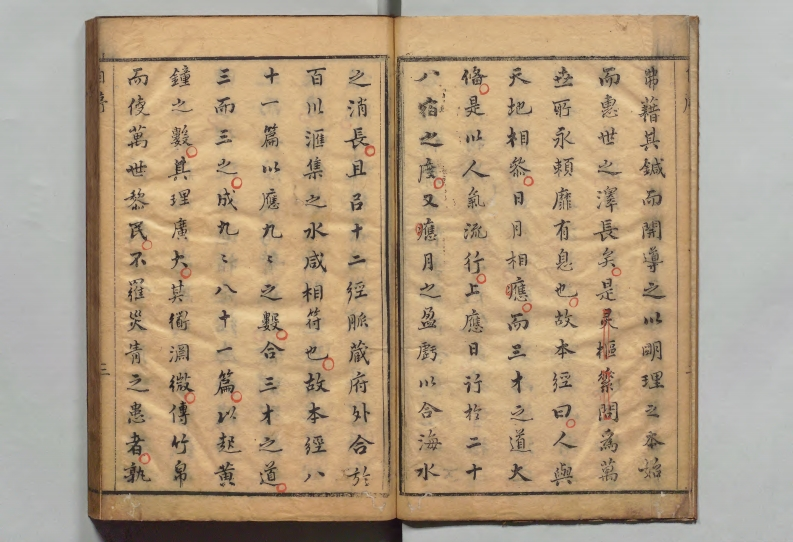 常藉其鍼而開導之以明理之本始
而惠世之澤長矣是灵樞素問為萬
世所永頼靡有息也故本經曰人與
天地相叅日月相應而三才之道大
俻是以人氣流行上應日行於二十
八宿之度又應月之盈虧以合海水
之消長且吕十二經脈蔵府外合於
百川滙集之水咸相符也故本經八
十一篇以應九〻之數合三才之道
三而三之成九〻八十一篇以起黄
鐘之數其理廣大其術淵微傳竹帛
而使萬世黎民不罹災眚之患者孰
自序
三